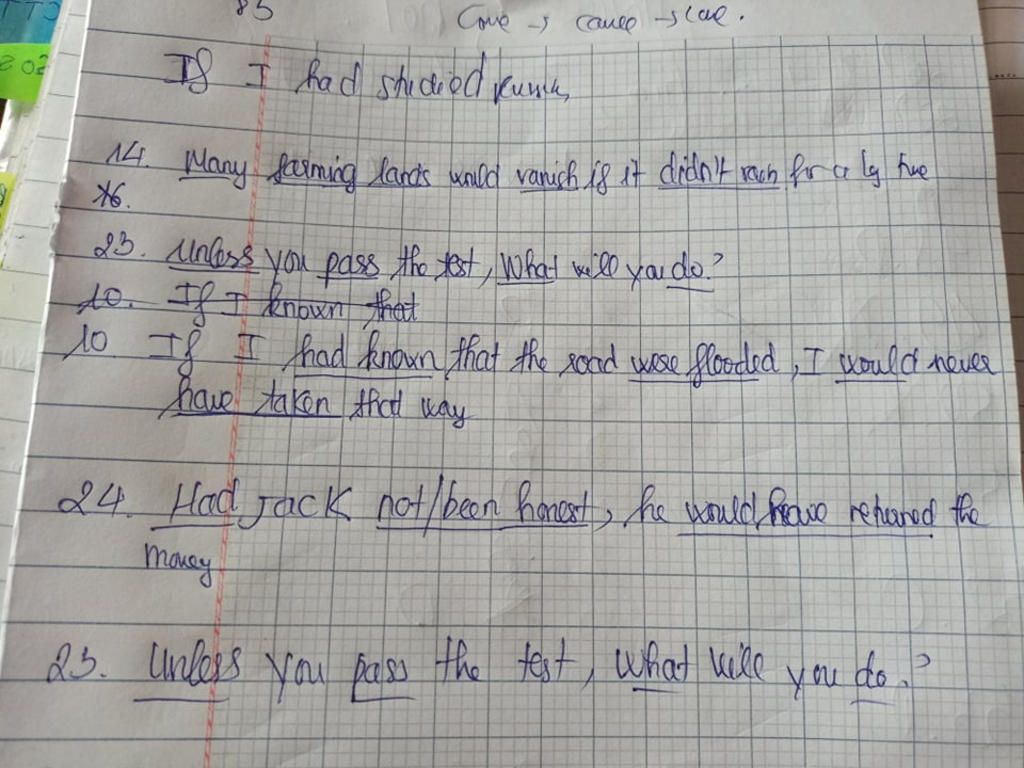 85
Come → cause →
If I had studied
14. Many farming lands would vanish if it didn't rain for a lg time
16.
23. Unless you pass the test, What will you do?
10. If I known that
10 If I had known that the road were flooded, I would never
have taken that way
24. Had Jack not/been honest, he would have retuned the
money
23. Unless you pass the test, what will you do?